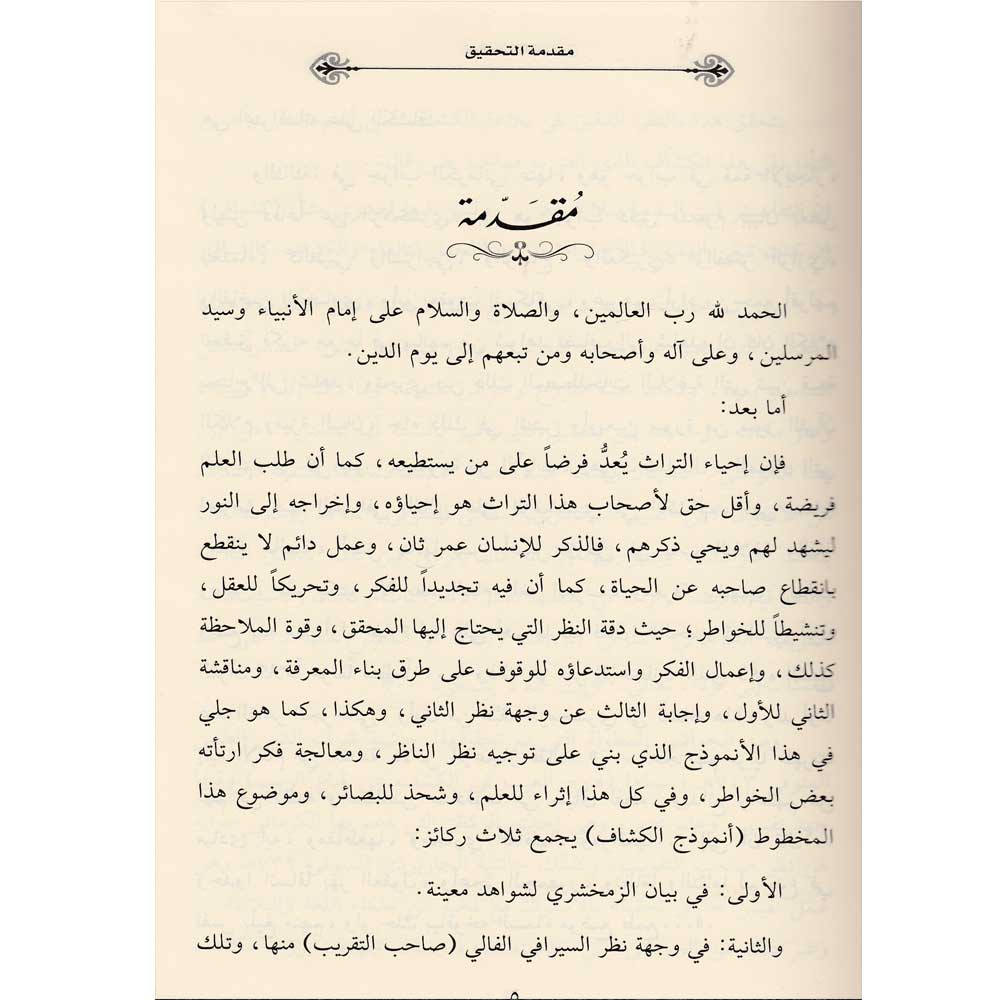 مقدمة التحقيق
مُقَدّمة
الحمد لله رب العالمين، والصلاة والسلام على إمام الأنبياء وسيد
المرسلين، وعلى آله وأصحابه ومن تبعهم إلى يوم الدين.
أما بعد:
فإن إحياء التراث يُعدُّ فرضاً على من يستطيعه، كما أن طلب العلم
فريضة، وأقل حق لأصحاب هذا التراث هو إحياؤه، وإخراجه إلى النور
ليشهد لهم ويحي ذكرهم، فالذكر للإنسان عمر ثان، وعمل دائم لا ينقطع
بانقطاع صاحبه عن الحياة، كما أن فيه تجديداً للفكر، وتحريكاً للعقل،
وتنشيطاً للخواطر؛ حيث دقة النظر التي يحتاج إليها المحقق، وقوة الملاحظة
كذلك، وإعمال الفكر واستدعاؤه للوقوف على طرق بناء المعرفة، ومناقشة
الثاني للأول، وإجابة الثالث عن وجهة نظر الثاني، وهكذا، كما هو جلي
في هذا الأنموذج الذي بني على توجيه نظر الناظر، ومعالجة فكر ارتأته
بعض الخواطر، وفي كل هذا إثراء للعلم، وشحذ للبصائر، وموضوع هذا
المخطوط (أنموذج الكشاف) يجمع ثلاث ركائز:
الأولى: في بيان الزمخشري لشواهد معينة.
والثانية: في وجهة نظر السيرافي الفالي (صاحب التقريب) منها، وتلك